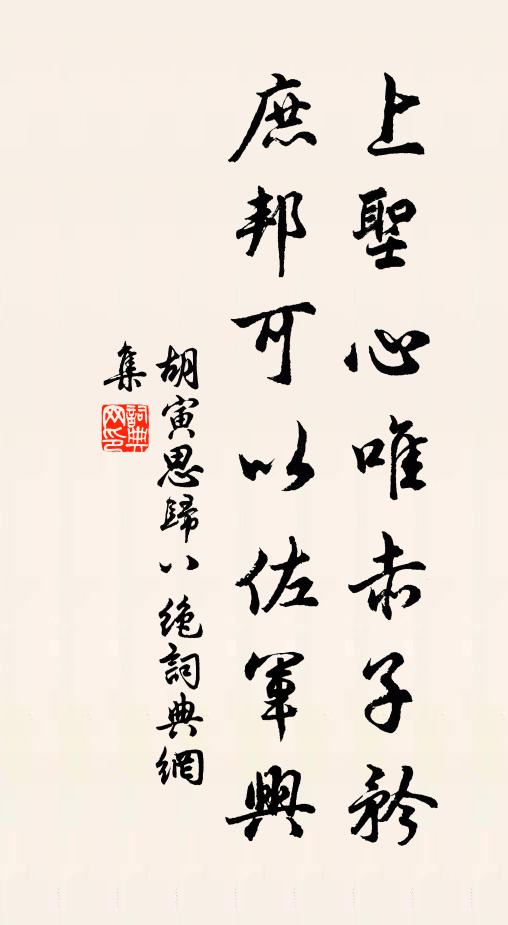 上聖心唯赤子矜
庶邦可以佐軍興
胡寅思歸八絶詞典網
集
詞典
网印